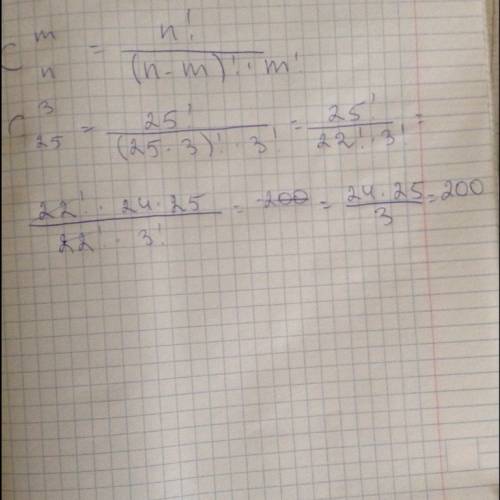 C_n^m = n! / ((n - m)! · m!)
C_25^3 = 25! / ((25 · 3)! · 3!) = 25! / (22! · 3!) =
(22! · 24 · 25) / (22! · 3!) = ~~200~~ = (24 · 25) / 3 = 200